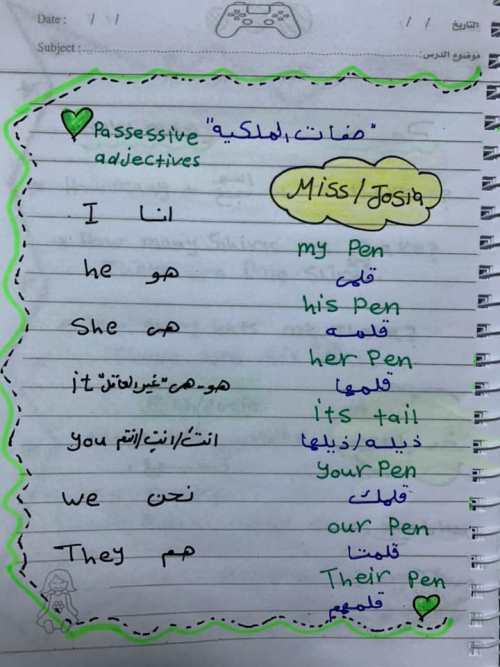 Date : / / / / التاريخ
Subject : موضوع الدرس:
Passessive "صفات الملكية"
adjectives
Miss/Josia
I انا
my Pen
he هو قلمي
his Pen
She هى قلمه
her Pen
it هو-هى "غير العاقل" قلمها
its tail
you انتَ/انتِ/انتم ذيله/ذيلها
your Pen
we نحن قلمك
our Pen
They هم قلمنا
Their Pen
قلمهم